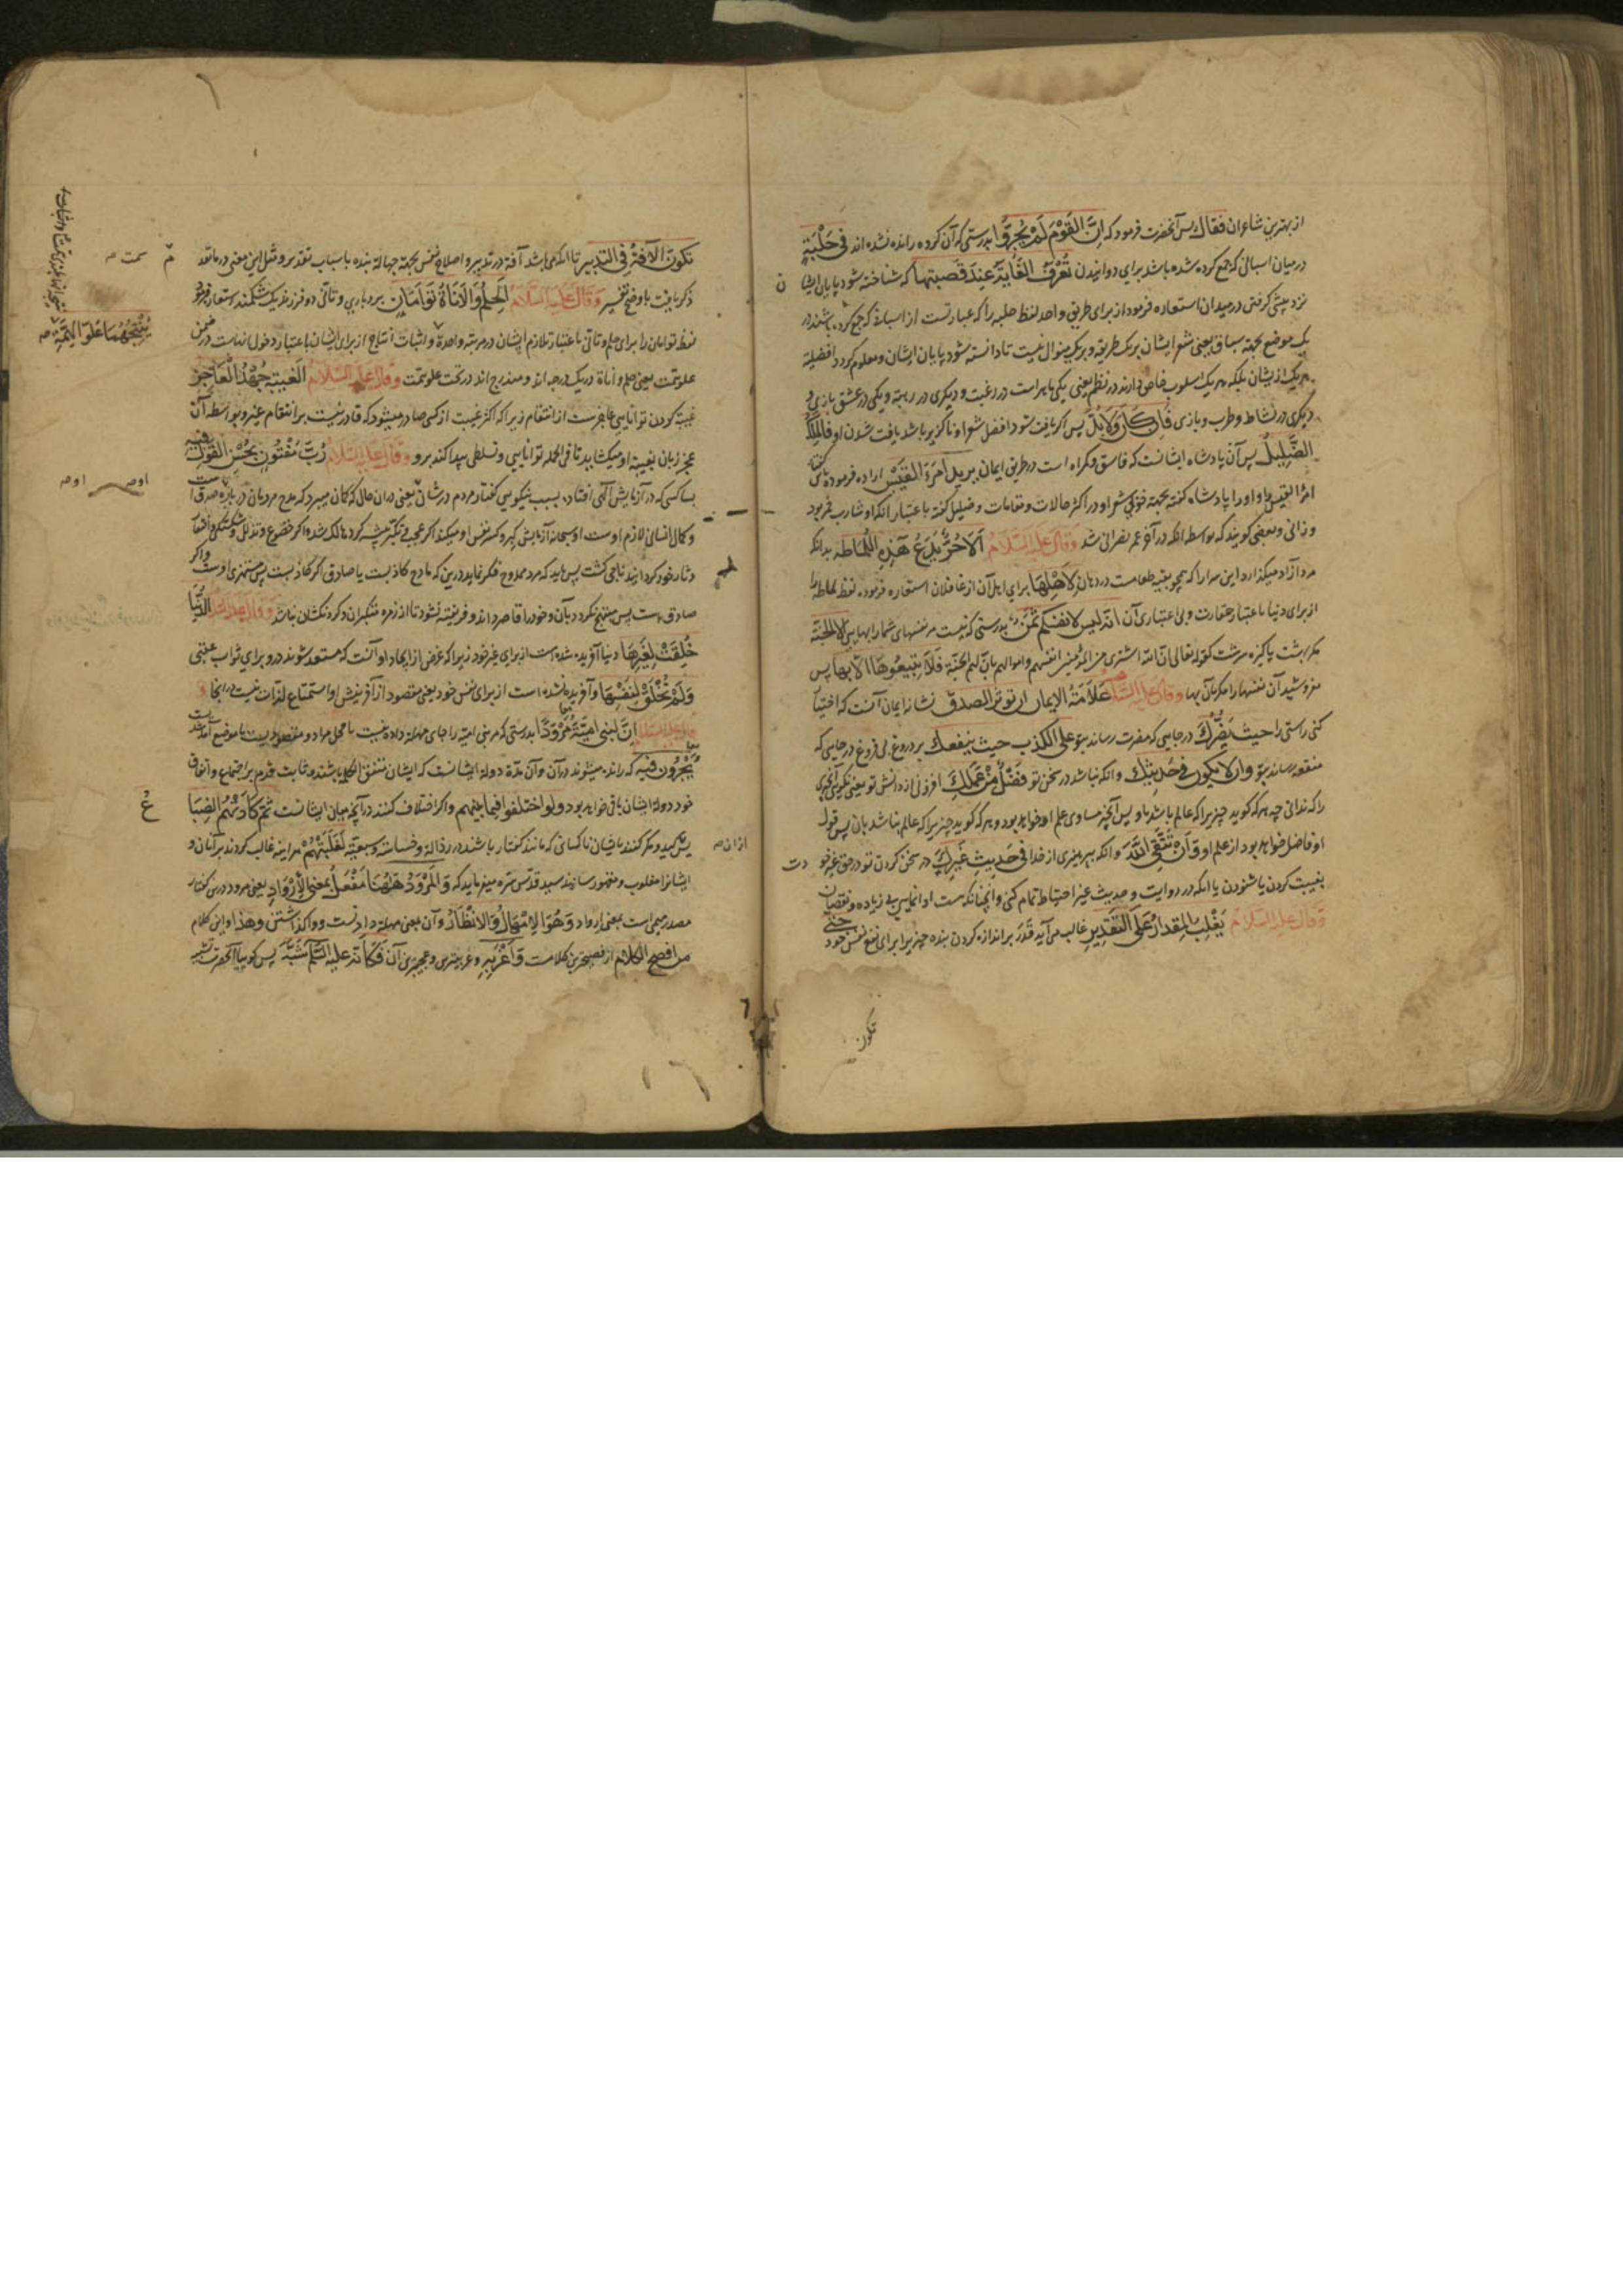 از بهترین شاعران فقال پس آنحضرت فرمود که اِنَّ القَوْمَ لَمْ یُجْرَوْا بدرستی که آن کروه رانده نشده اند فی حَلْبَةٍ
در میان اسبانی که جمع کرده شده باشد برای دوانیدن تُعْرَفُ الغَایَةُ عِندَ قَصَبَتِها که شناخته شود پایان ایشان
نزد پیشی کرفتن در میدان استعاره فرمود از برای طریق واحد لفظ حلبه را که عبارتست از اسبان که جمع کرده باشند در
یک موضع بجهة سباق یعنی شعر ایشان بر یک طریقه و بر یک منوال نیست تا دانسته شود پایان ایشان و معلوم کردد افضلیة
هر یک از یشان بلکه هر یک اسلوب خاص دارند در نظم یعنی یکی ماهر است در رغبت و دیکری در رهبة و یکی در عشق بازی و
دیکری در نشاط و طرب و بازی فَاِن كَانَ وَلَابُدَّ پس اکر یافت شود افضل شعرا و ناکزیر باشد یافت شدن او فالمَلِكُ
الضِّلِیلُ پس آن پادشاه ایشانست که فاسق و کمراه است در طریق ایمان یرید امرَءَ القَیْس اراده فرموده باین
امرأ القیس را و او را پادشاه کفته بجهة خوبی شعر او در اکثر حالات و مقامات و ضلیل کفته باعتبار آنکه او شارب خمر بود
و زانی و بعضی کویند که بواسطه آنکه در آخر عمر نصرانی شد وَقَالَ عَلَیهِ السَّلَامُ اَلَا حُرٌّ یَدَعُ هَذِهِ اللُّمَاظَه بدانکه
مرد آزاد میکذارد این سرا را که همچو بقیه طعامست در دهان لِاَهْلِهَا برای اهل آن از غافلان استعاره فرموده لفظ لماظه را
از برای دنیا باعتبار حقارت و بی اعتباری آن انّه لیس لانفسکم ثَمَنٌ بدرستی که نیست مر نفسهای شما را بهایی اِلّا الجَنَّة
مکر بهشت پاکیزه سرشت کقوله تعالی انّ اللّه اشتری من المؤمنین انفسهم و اموالهم بانّ لهم الجنّة فَلَا تَبِیعُوهَا اِلّا بها پس
مفروشید آن نفسها را مکر بآن بها وقال علیه السّلام عَلَامَةُ الإیمان ان تؤثر الصدق نشانه ایمان آنست که اختیار
کنی راستی را حیث یَضُرُّكَ در جایی که مضرت رساند بتو علی الکذب حیث ینفعك بر دروغ بی فروغ در جایی که
منفعه رساند بتو وان لا یکون فی حَدِیثِك و آنکه نباشد در سخن تو فَضْلٌ عَنْ عَمَلِكَ افزونی از دانش تو یعنی نکوئی چیزی
را که ندانی چه هر که کوید چیزیرا که عالم باشد باو پس آنچیز مساوی علم او خواهد بود و هر که کوید چیزیرا که عالم نباشد بان پس قول
او فاضل خواهد بود از علم او وَ اَن تَتَّقِیَ اللّهَ و آنکه بپرهیزی از خدا فی حَدِیثِ غَیرِكَ در سخن کردن تو در حق غیر خود
بغیبت کردن یا شنودن یا آنکه در روایت و حدیث غیر احتیاط تمام کنی و آنچنانکه هست ادا نمایی بی زیاده و نقصان
وَقَالَ عَلَیهِ السَّلَامُ یَغْلِبُ المِقدَارُ عَلَی التَّقدِیرِ غالب می آید قَدَر بر اندازه کردن بنده چیزیرا برای نفع نفس خود حَتّی
تکون
تَکونَ الآفَةُ فِی التَدبیر تا آنکه می باشد آفة در تدبیر و اصلاح نفس بجهة جهالة بنده باسباب تقدیر و مثل این معنی در ما تقدم
ذکر یافت باوضح تفسیر وَقَالَ عَلَیهِ السَّلَامُ اَلحِلْمُ وَالأَنَاةُ تَوْأَمَانِ بردباری و تأنی دو فرزند یک شکمند استعاره فرمود
لفظ توأمان را برای حلم و تأنی باعتبار تلازم ایشان در مرتبه واحدة و اثبات انتاج از برای ایشان باعتبار دخول انهاست در ضمن
علو همّت یعنی حلم و اناة در یک درجه اند و مندرج اند در تحت علو همّت وَقَالَ عَلَیهِ السَّلَامُ الغَیبَةُ جُهْدُ الْعَاجِزِ
غیبة کردن توانایی عاجز ست از انتقام زیرا که اکثر غیبت از کسی صادر میشود که قادر نیست بر انتقام غیر و بواسطه آن
عجز زبان بغیبة او میکشاید تا فی الجمله توانایی و تسلطی پیدا کند برو وَقَالَ عَلَیهِ السَّلَامُ رُبَّ مَفْتُونٍ بِحُسْنِ القَوْلِ فیه
بسا کسی که در آزمایش الهی افتاده بسبب نیکویی کفتار مردم در شان او یعنی در ان حال که کمان میبرد که مدح مردمان درباره
و کمال انسانی لازم اوست
صادق است پس مبتهج نکردد بآن و خود را قاصر داند و فریفته نشود تا از زمره متکبران و کردنکشان نباشد وَقَالَ عَلَیهِ السَّلَامُ الدُّنْیَا
خُلِقَتْ لِغَیرِهَا دنیا آفریده شده است از برای غیر خود زیرا که غرض از ایجاد او آنست که مستعد شوند درو برای ثواب عقبی
وَلَمْ تُخْلَقْ لِنَفْسِهَا و آفریده نشده است از برای نفس خود یعنی مقصود از آفرینش او استمتاع لذّات نیست در اینجا و
قال علیه السّلام اِنَّ لبنی اُمَیَّةَ مِرْوَدًا بدرستی که مر بنی امیه را جای مهلة داده نیست
یَجْرُونَ فِیهِ که رانده میشوند در آن و آن مدّة دولة ایشانست که ایشان متفق الکلمه باشند و ثابت قدم بر اجتماع و اتفاق
خود دولة ایشان باقی خواهد بود ولو اختلفوا فیما بینهم و اکر اختلاف کنند در آنچه میان ایشانست ثُمَّ کَادَتْهُمُ الضِبَاعُ
پس کید و مکر کنند بایشان ناکسانی که مانند کفتار باشند در رذالة و خساسة و سبعیّه لَغَلَبَتْهُمْ هر اینه غالب کردند بر آنان و
ایشانرا مغلوب و مقهور سازند سید قدّس سرّه میفرماید که وَالمِرْوَدُ هَهُنَا مَفْعَلٌ بمعنی الإِرْوَادِ یعنی مرود درین کفتار
مصدر میمی است بمعنی ارواد وَهُوَ الاِمْهَالُ وَالاِنْظَارُ و آن بمعنی مهلة دادنست و واکذاشتن وهذا و این کلام
من افصح الکلام از فصیحترین کلامست وَ اَغْرَبِهِ و غریبترین و عجیبترین آن فَکَاَنَّهُ علیه السّلام شَبَّهَ پس کوییا آنحضرت تشبیه
یُنْتِجُهُمَا عُلُوُّ الهِمَّةِ صح